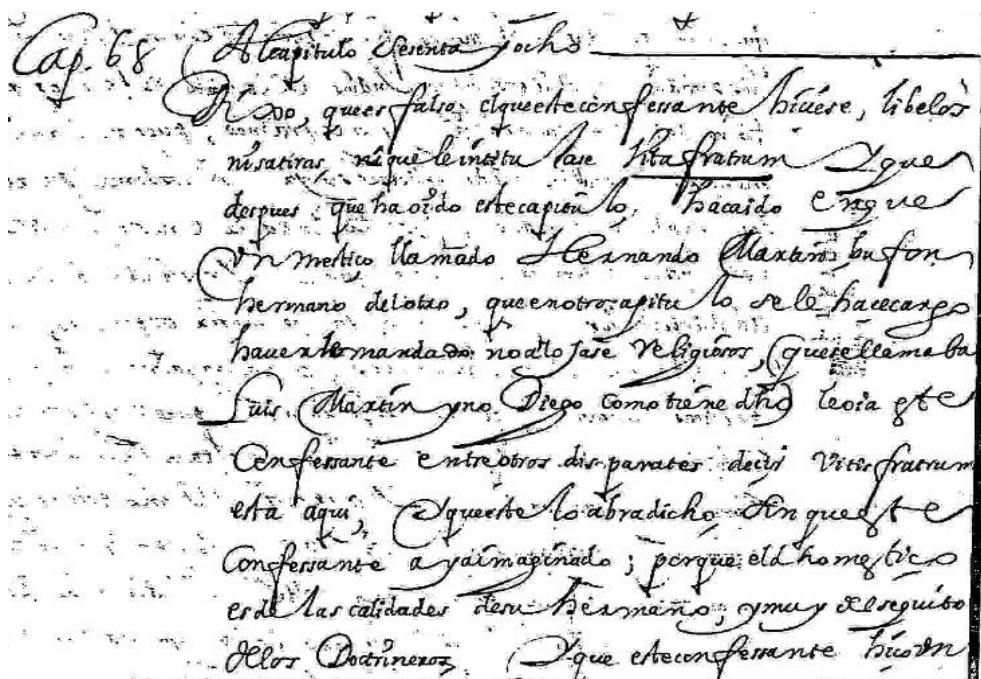 Cap. 68 Al capitulo sesenta y ocho
Rdo, que es falso el que este confessante hiciese, libelos
ni satiras, ni que le intitulase Vita fratrum Y que
despues que ha oido este capitulo, ha caido en que
Un mestiço llamado Hernando Martin, bufon,
hermano del otro, que en otro capitulo se le hace cargo
haver mandado no alojase Religiosos, (que se llamaba
Luis Martin y no Diego como tiene dho) le oia este
Confessante entre otros disparates decir Vitis fratrum
está aqui, Y que este lo abra dicho sin que este
Confessante aya imaginado; porque el dho mestico
es de las calidades de su hermano, y muy del sequito
de los Doctrineros, Y que este confessante hiço Un